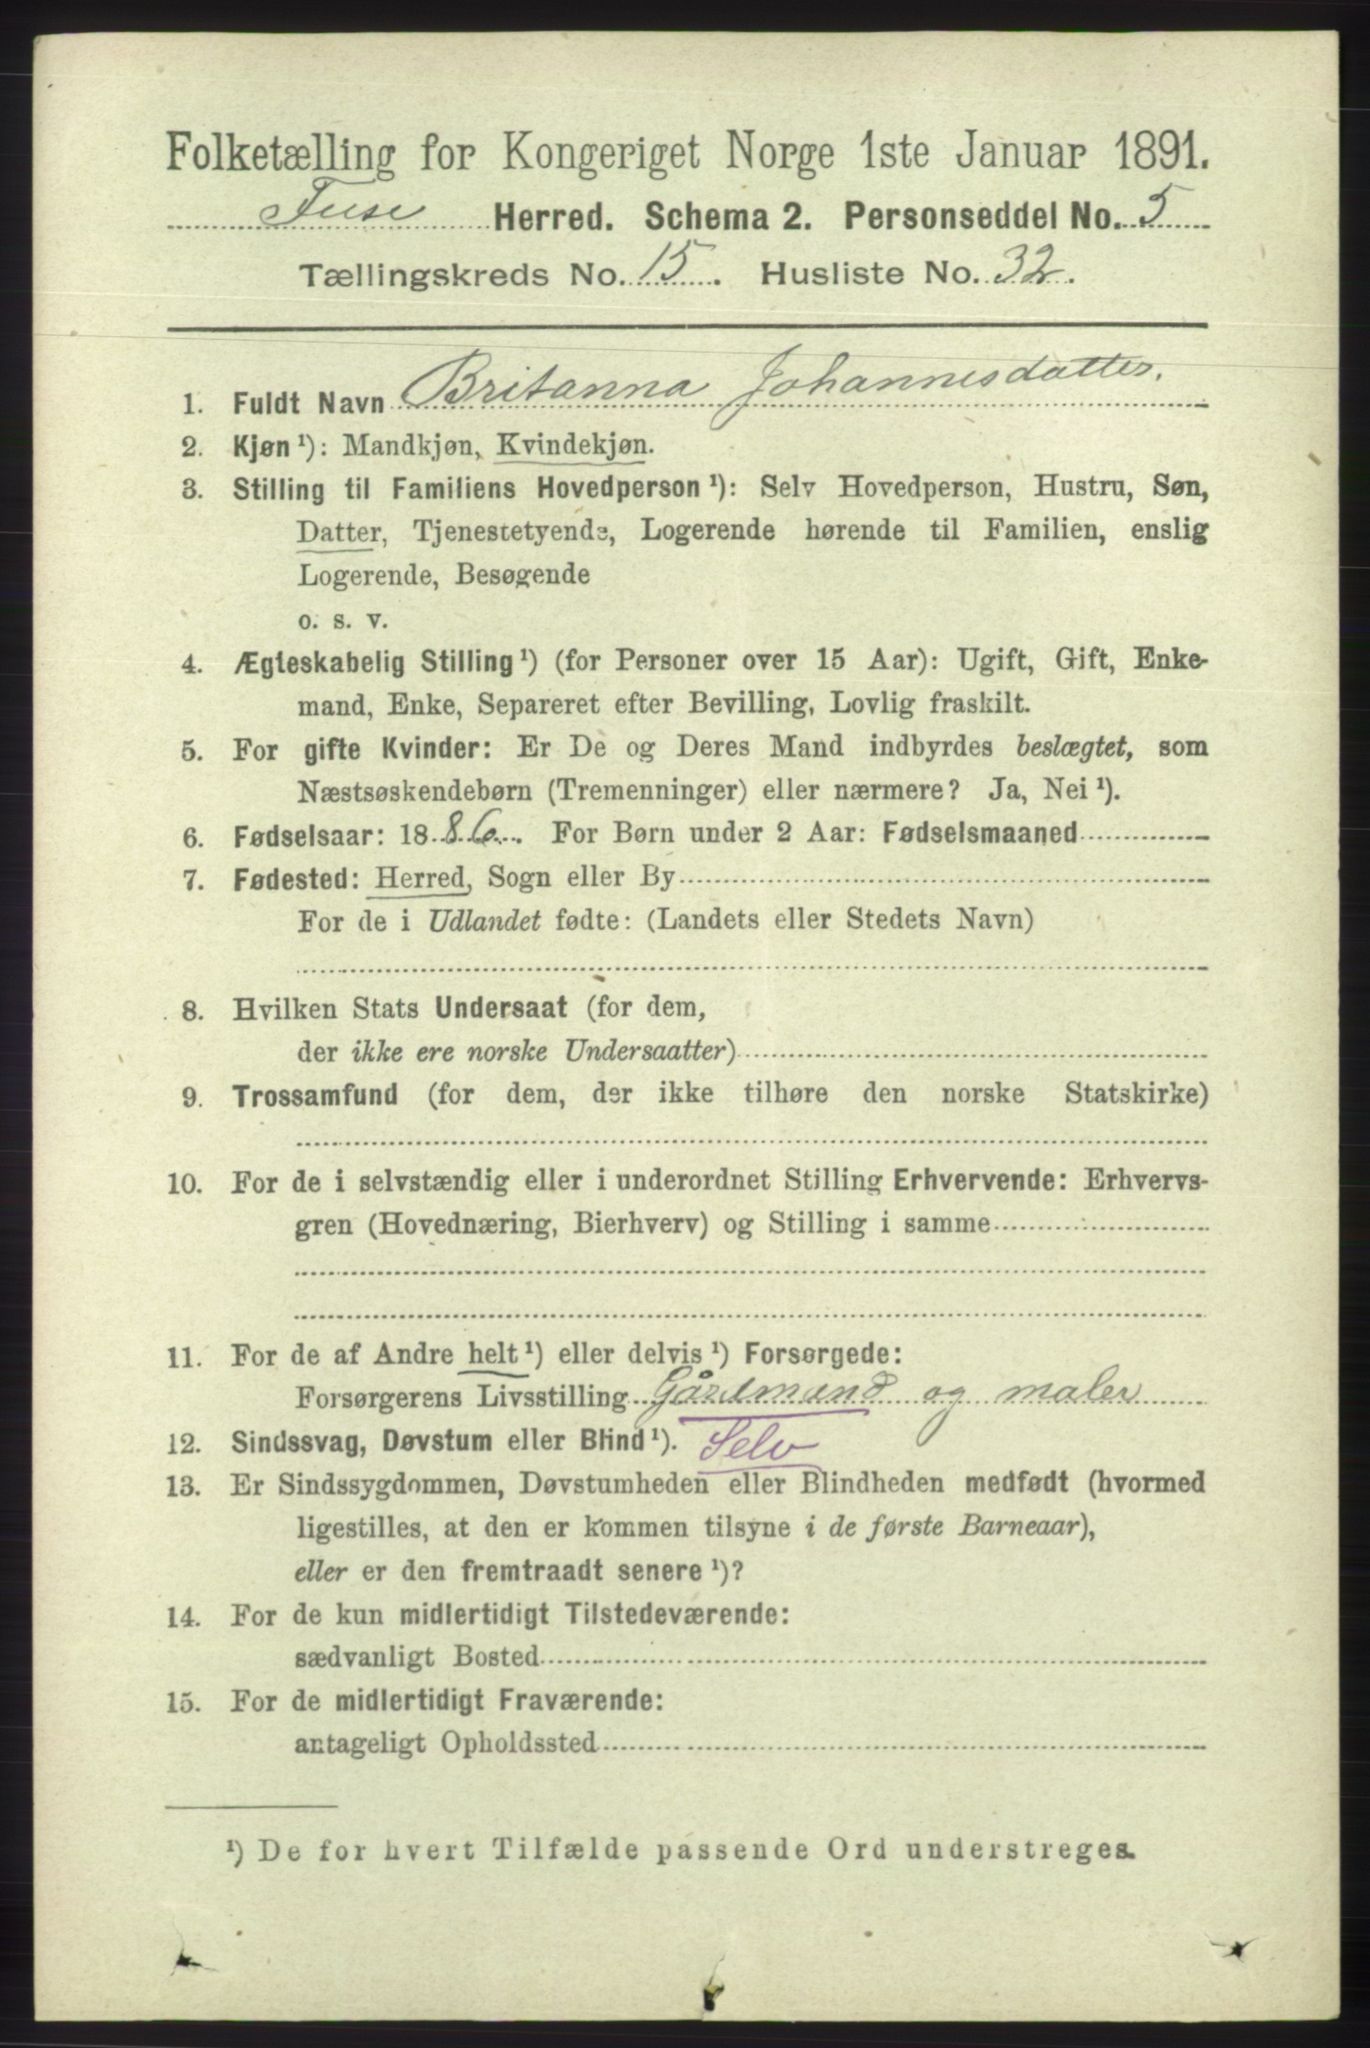 Folketælling for Kongeriget Norge 1ste Januar 1891.
Fuse Herred. Schema 2. Personseddel No. 5
Tællingskreds No. 15. Husliste No. 32.
1. Fuldt Navn Britanna Johannesdatter.
2. Kjøn ¹): Mandkjøn, Kvindekjøn.
3. Stilling til Familiens Hovedperson ¹): Selv Hovedperson, Hustru, Søn,
Datter, Tjenestetyende, Logerende hørende til Familien, enslig
Logerende, Besøgende
o. s. v.
4. Ægteskabelig Stilling ¹) (for Personer over 15 Aar): Ugift, Gift, Enke-
mand, Enke, Separeret efter Bevilling, Lovlig fraskilt.
5. For gifte Kvinder: Er De og Deres Mand indbyrdes beslægtet, som
Næstsøskendebørn (Tremenninger) eller nærmere? Ja, Nei ¹).
6. Fødselsaar: 1886. For Børn under 2 Aar: Fødselsmaaned
7. Fødested: Herred, Sogn eller By
For de i Udlandet fødte: (Landets eller Stedets Navn)
8. Hvilken Stats Undersaat (for dem,
der ikke ere norske Undersaatter)
9. Trossamfund (for dem, der ikke tilhøre den norske Statskirke)
10. For de i selvstændig eller i underordnet Stilling Erhvervende: Erhvervs-
gren (Hovednæring, Bierhverv) og Stilling i samme
11. For de af Andre helt ¹) eller delvis ¹) Forsørgede:
Forsørgerens Livsstilling Gårdmand og maler
12. Sindssvag, Døvstum eller Blind ¹). Selv
13. Er Sindssygdommen, Døvstumheden eller Blindheden medfødt (hvormed
ligestilles, at den er kommen tilsyne i de første Barneaar),
eller er den fremtraadt senere ¹)?
14. For de kun midlertidigt Tilstedeværende:
sædvanligt Bosted
15. For de midlertidigt Fraværende:
antageligt Opholdssted
¹) De for hvert Tilfælde passende Ord understreges.